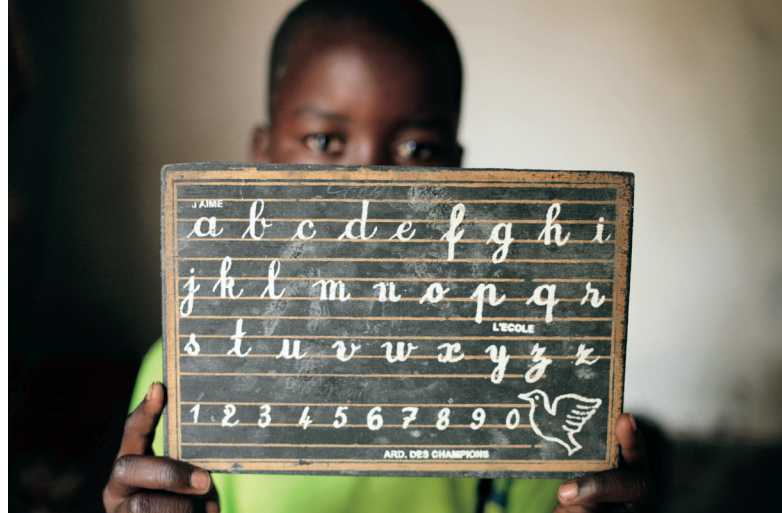 J'AIME
a b c d e f g h i
j k l m n o p q r
L'ECOLE
s t u v w x y z z
1 2 3 4 5 6 7 8 9 0
ARD. DES CHAMPIONS